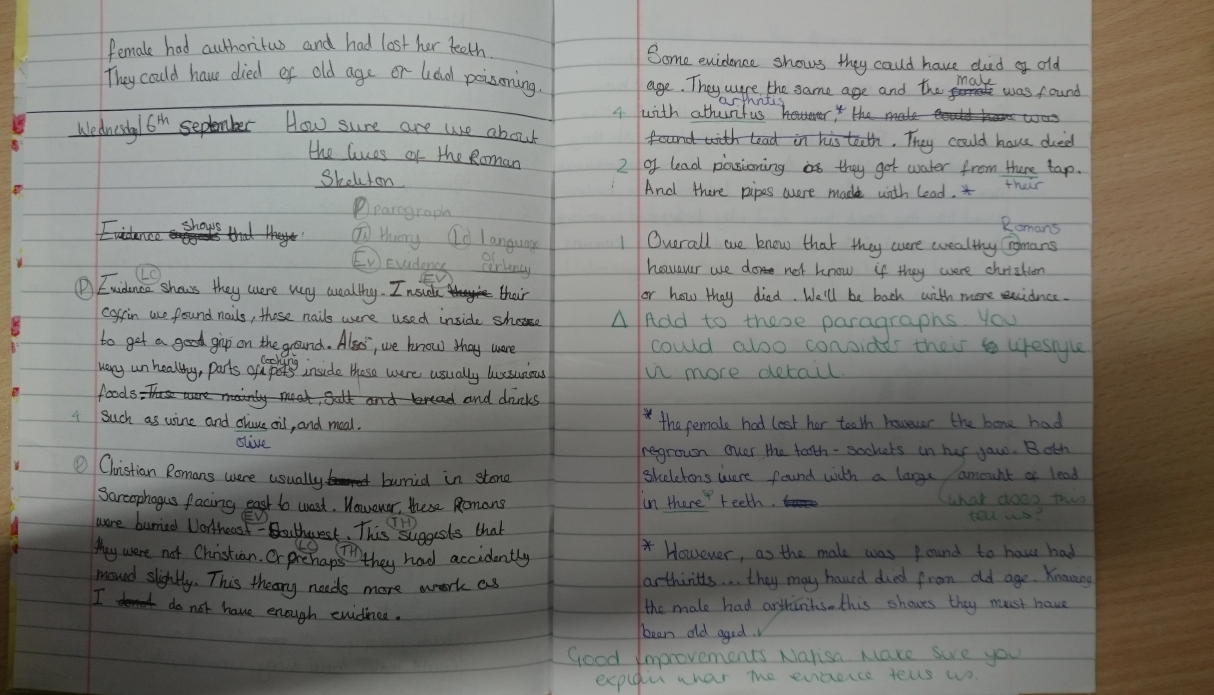 female had authoritus and had lost her teeth.
They could have died of old age or lead poisoning.
Wednesday 6th September How sure are we about
the lives of the Roman
Skeleton
(P) paragraph
shows
Evidence suggests that they
(TH) theory (LC) language
of
(EV) Evidence certenty
(LC) (EV)
(P) Evidence shows they were very wealthy. Inside they're their
coffin we found nails, these nails were used inside shose
to get a good grip on the ground. Also, we know they were
cooking
very unhealthy, parts of pots inside these were usually luxsurious
foods. These were mainly meat, Salt and bread and drinks
4 Such as wine and olive oil, and meal.
olive
(P) Christian Romans were usually burried in stone
Sarcophagus facing east to west. However, these Romans
(EV) (TH)
were burried Northeast - Southwest. This suggests that
(LC) (TH)
they were not Christian. Or prehaps they had accidently
moved slightly. This theary needs more work as
I do not have enough evidince.
Some evidence shows they could have died of old
male
age. They were the same age and the female was found
arthritis
4 with athuritus however,* the male could have was
found with lead in his teeth. They could have died
2 of lead poisioning as they got water from there tap.
their
And there pipes were made with lead. *
Romans
1 Overall we know that they were wealthy romans
however we done not know if they were christion
or how they died. We'll be back with more euidnce.
Δ Add to these paragraphs. You
could also consider their lifestyle
in more detail.
* the female had lost her teeth however the bone had
regrown over the tooth-sockets in her jaw. Both
skeletons were found with a large amount of lead
in there teeth.
What does this
tell us?
* However, as the male was found to have had
arthiritts... they may haved died from old age. Knowing
the male had arthiritis this shows they must have
been old aged.
Good improvements Nafisa. Make sure you
explain what the evidence tells us.